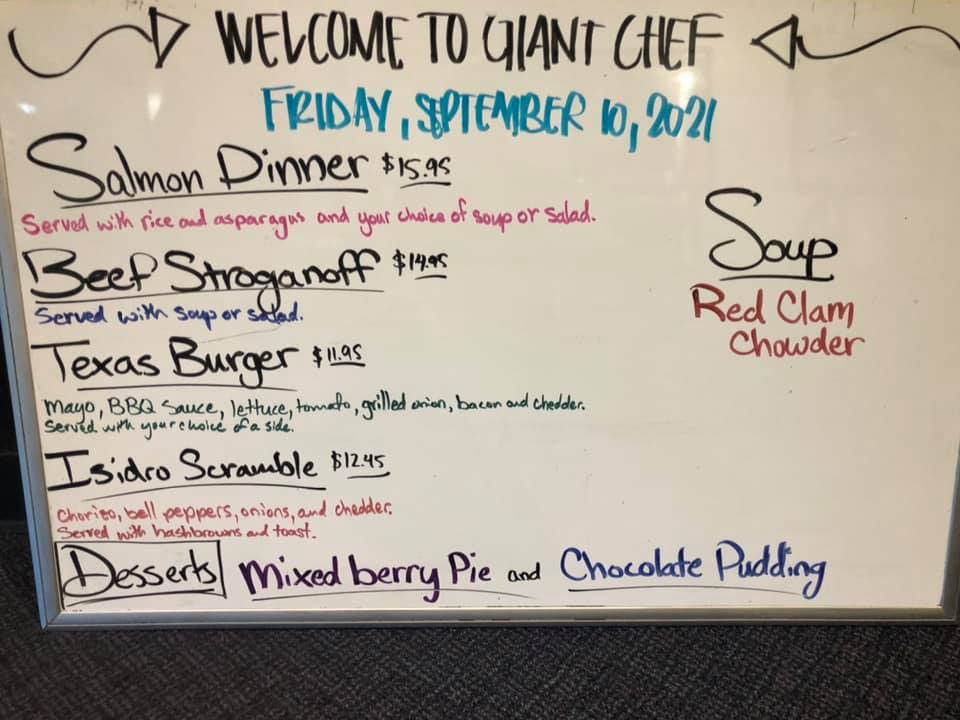 WELCOME TO GIANT CHEF
FRIDAY, SEPTEMBER 10, 2021
Salmon Dinner $15.95
Served with rice and asparagus and your choice of soup or salad.
Beef Stroganoff $14.95
Served with soup or salad.
Texas Burger $11.95
Mayo, BBQ Sauce, lettuce, tomato, grilled onion, bacon and chedder.
Served with your choice of a side.
Isidro Scramble $12.45
Chorizo, bell peppers, onions, and chedder.
Served with hashbrowns and toast.
Desserts Mixed berry Pie and Chocolate Pudding
Soup
Red Clam
Chowder